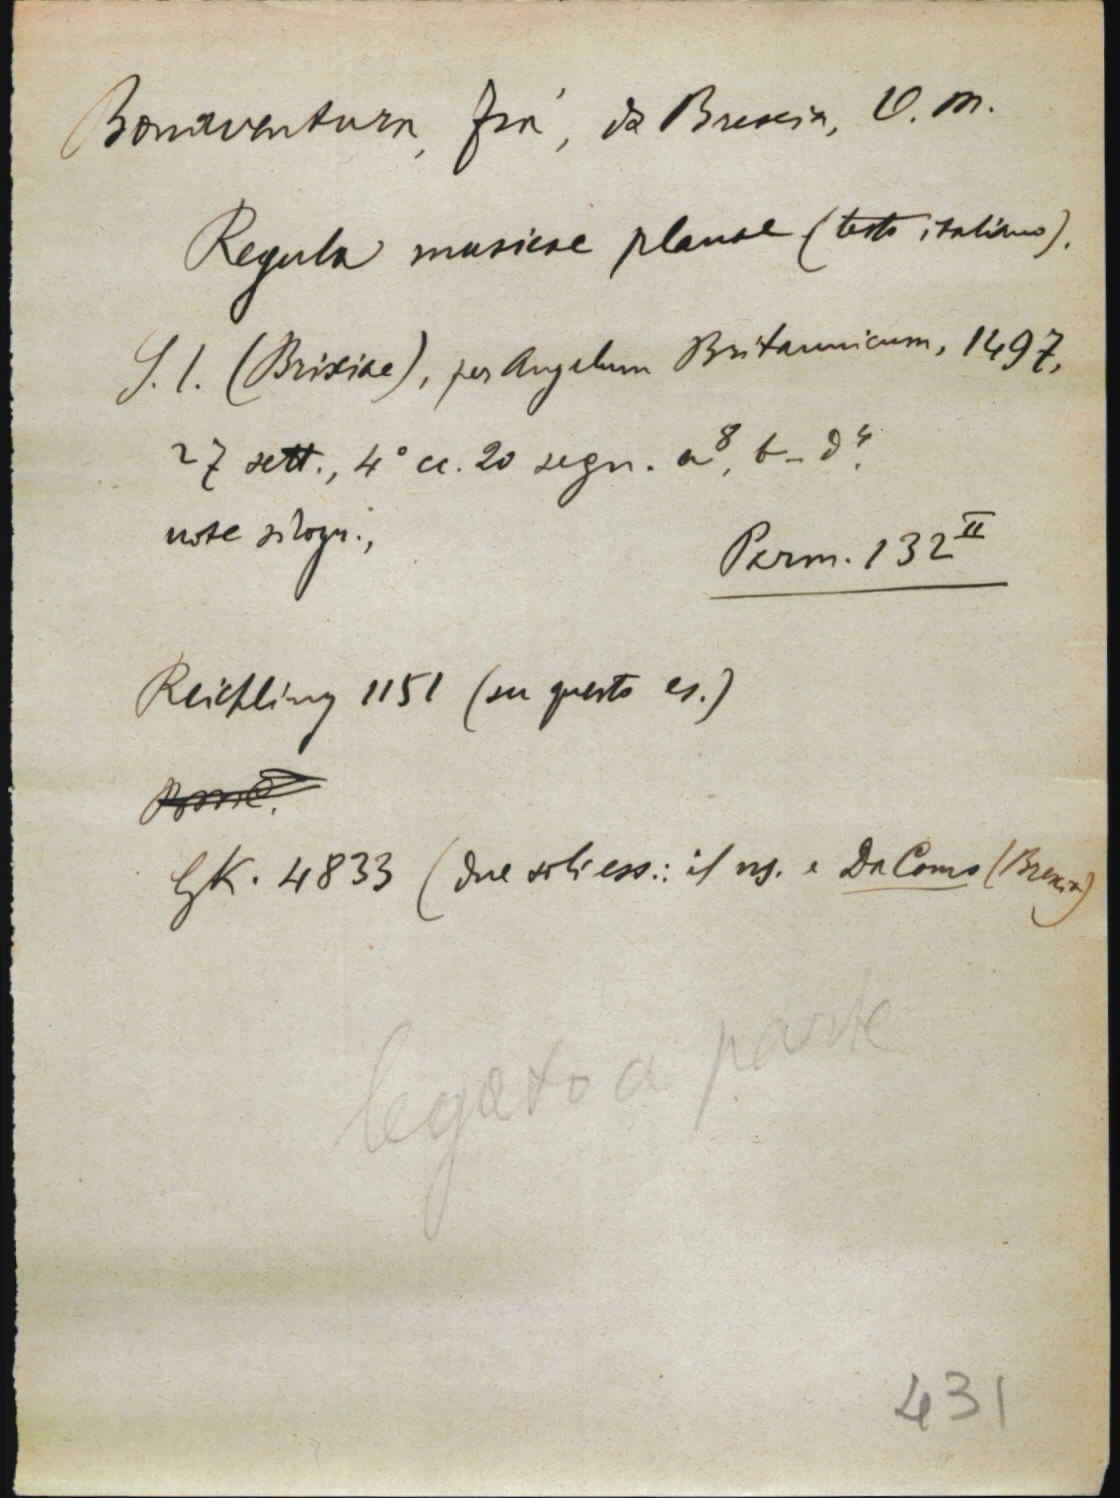 Bonaventura, Fra', da Brescia, O. M.
Regula musicae planae (testo italiano).
S. l. (Brixiae), per Angelum Britannicum, 1497,
27 sett., 4° cc. 20 segn. a⁸, b-d⁴.
note silogr.,
Parm. 132ᴵᴵ
Reichling 1151 (su questo es.)
GK. 4833 (due soli ess.: il ns. e Da Como (Brescia)
legato a parte
431